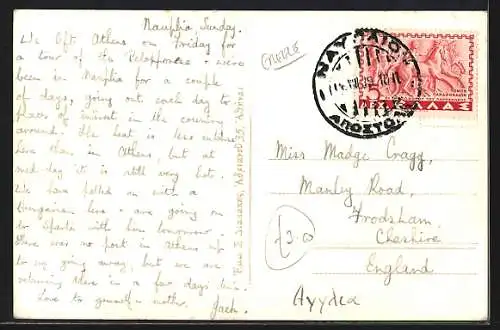 Nauplia Sunday.
We left Athens on Friday for
a tour of the Peloponnese & were
been in Nauplia for a couple
of days, going out each day to
places of interest in the country
around. The heat is less intense
here than in Athens, but at
mid-day it is still very hot.
We have palled up with a
Hungarian here & are going on
to Sparta with him tomorrow.
There was no post in Athens up
to my going away, but we are
returning there in a few days time.
Love to yourself & mother.
Jack.
GREECE
ΝΑΥΠΛΙΟΝ
ΑΠΟΣΤΟΛΗ
ΕΛΛΑΣ
Miss Madge Cragg,
Manley Road,
Frodsham,
Cheshire
England
Αγγλία
£3.00